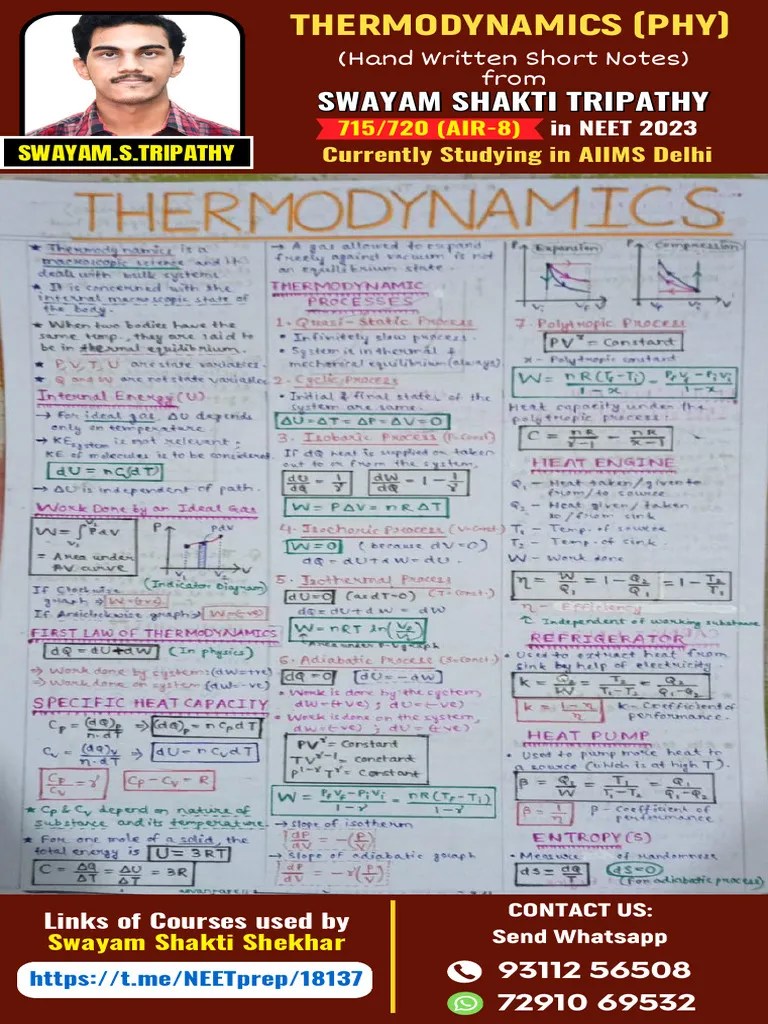 THERMODYNAMICS (PHY)
(Hand Written Short Notes)
from
SWAYAM SHAKTI TRIPATHY
715/720 (AIR-8) in NEET 2023
Currently Studying in AIIMS Delhi
SWAYAM.S.TRIPATHY
THERMODYNAMICS
★ Thermodynamics is a
macroscopic science and it
deals with bulk systems
★ It is concerned with the
internal macroscopic state of
the body.
★ When two bodies have the
same temp., they are said to
be in thermal equilibrium.
★ P, V, T, U are state variables.
★ Q and W are not state variables
Internal Energy (U)
→ For ideal gas, ΔU depends
only on temperature
→ KE system is not relevant;
KE of molecules is to be considered.
dU = nCv(dT)
→ ΔU is independent of path.
Work Done by an Ideal Gas
W = ∫ PdV
V₁ V₂
= Area under
PV curve
P PdV
V₁ V₂ V
(Indicator Diagram)
If Clockwise
graph → W = (+ve)
If Anticlockwise graph → W = (-ve)
FIRST LAW OF THERMODYNAMICS
dQ = dU + dW (In physics)
→ Work done by system: (dW = +ve)
→ Work done on system: (dW = -ve)
SPECIFIC HEAT CAPACITY
Cp = (dQ)p / n.dT ⇒ (dQ)p = nCp dT
Cv = (dQ)v / n.dT ⇒ dU = nCv dT
Cp/Cv = γ Cp - Cv = R
★ Cp & Cv depend on nature of
substance and its temperature
★ For one mole of a solid, the
total energy is U = 3RT
C = ΔQ/ΔT = ΔU/ΔT = 3R
→ A gas allowed to expand
freely against vacuum is not
an equilibrium state.
THERMODYNAMIC
PROCESSES
1. Quasi-Static Process
• Infinitely slow process.
• System is in thermal &
mechanical equilibrium (always)
2. Cyclic Process
• Initial & final states of the
system are same.
ΔU = ΔT = ΔP = ΔV = 0
3. Isobaric Process (P=Const)
If dQ heat is supplied or taken
out to or from the system.
dU/dQ = 1/γ dW/dQ = 1 - 1/γ
W = PΔV = nRΔT
4. Isochoric Process (V=Const)
W = 0 (because dV = 0)
dQ = dU + dW = dU.
5. Isothermal Process
dU = 0 (as dT = 0) (T=Const.)
dQ = dU + dW = dW
W = nRT ln(Vf/Vi)
Area under P-V graph
6. Adiabatic Process (S=Const.)
dQ = 0 dU = -dW
• Work is done by the system,
dW = (+ve); dU = (-ve)
• Work is done on the system,
dW = (-ve); dU = (+ve)
PVγ = Constant
TVγ-1 = constant
P1-γTγ = Constant
W = PfVf - PiVi / 1-γ = nR(Tf - Ti) / 1-γ
→ Slope of isotherm
dP/dV = -(P/V)
→ Slope of adiabatic graph
dP/dV = -γ(P/V)
P Expansion P Compression
Vi Vf V Vf Vi V
7. Polytropic Process
PVx = Constant
x - Polytropic constant
W = nR(Tf - Ti) / 1-x = PfVf - PiVi / 1-x
Heat capacity under the
polytropic process:
C = nR/γ-1 - nR/x-1
HEAT ENGINE
Q₁ - Heat taken/given to
from/to source
Q₂ - Heat given/taken
to/from sink
T₁ - Temp. of source
T₂ - Temp. of sink.
W - Work done
η = W/Q₁ = 1 - Q₂/Q₁ = 1 - T₂/T₁
η - Efficiency
Independent of working substance
REFRIGERATOR
• Used to extract heat from
sink by help of electricity
K = Q₂/W = T₂/T₁-T₂ = Q₂/Q₁-Q₂
K = 1-η/η K - Coefficient of
performance.
HEAT PUMP
• Used to pump more heat in
a source (which is at high T).
β = Q₁/W = T₁/T₁-T₂ = Q₁/Q₁-Q₂
β = 1/η β - Coefficient of
performance
ENTROPY (S)
• Measure of randomness
dS = dQ/T dS = 0
(For adiabatic process)
Links of Courses used by
Swayam Shakti Shekhar
https://t.me/NEETprep/18137
CONTACT US:
Send Whatsapp
93112 56508
72910 69532